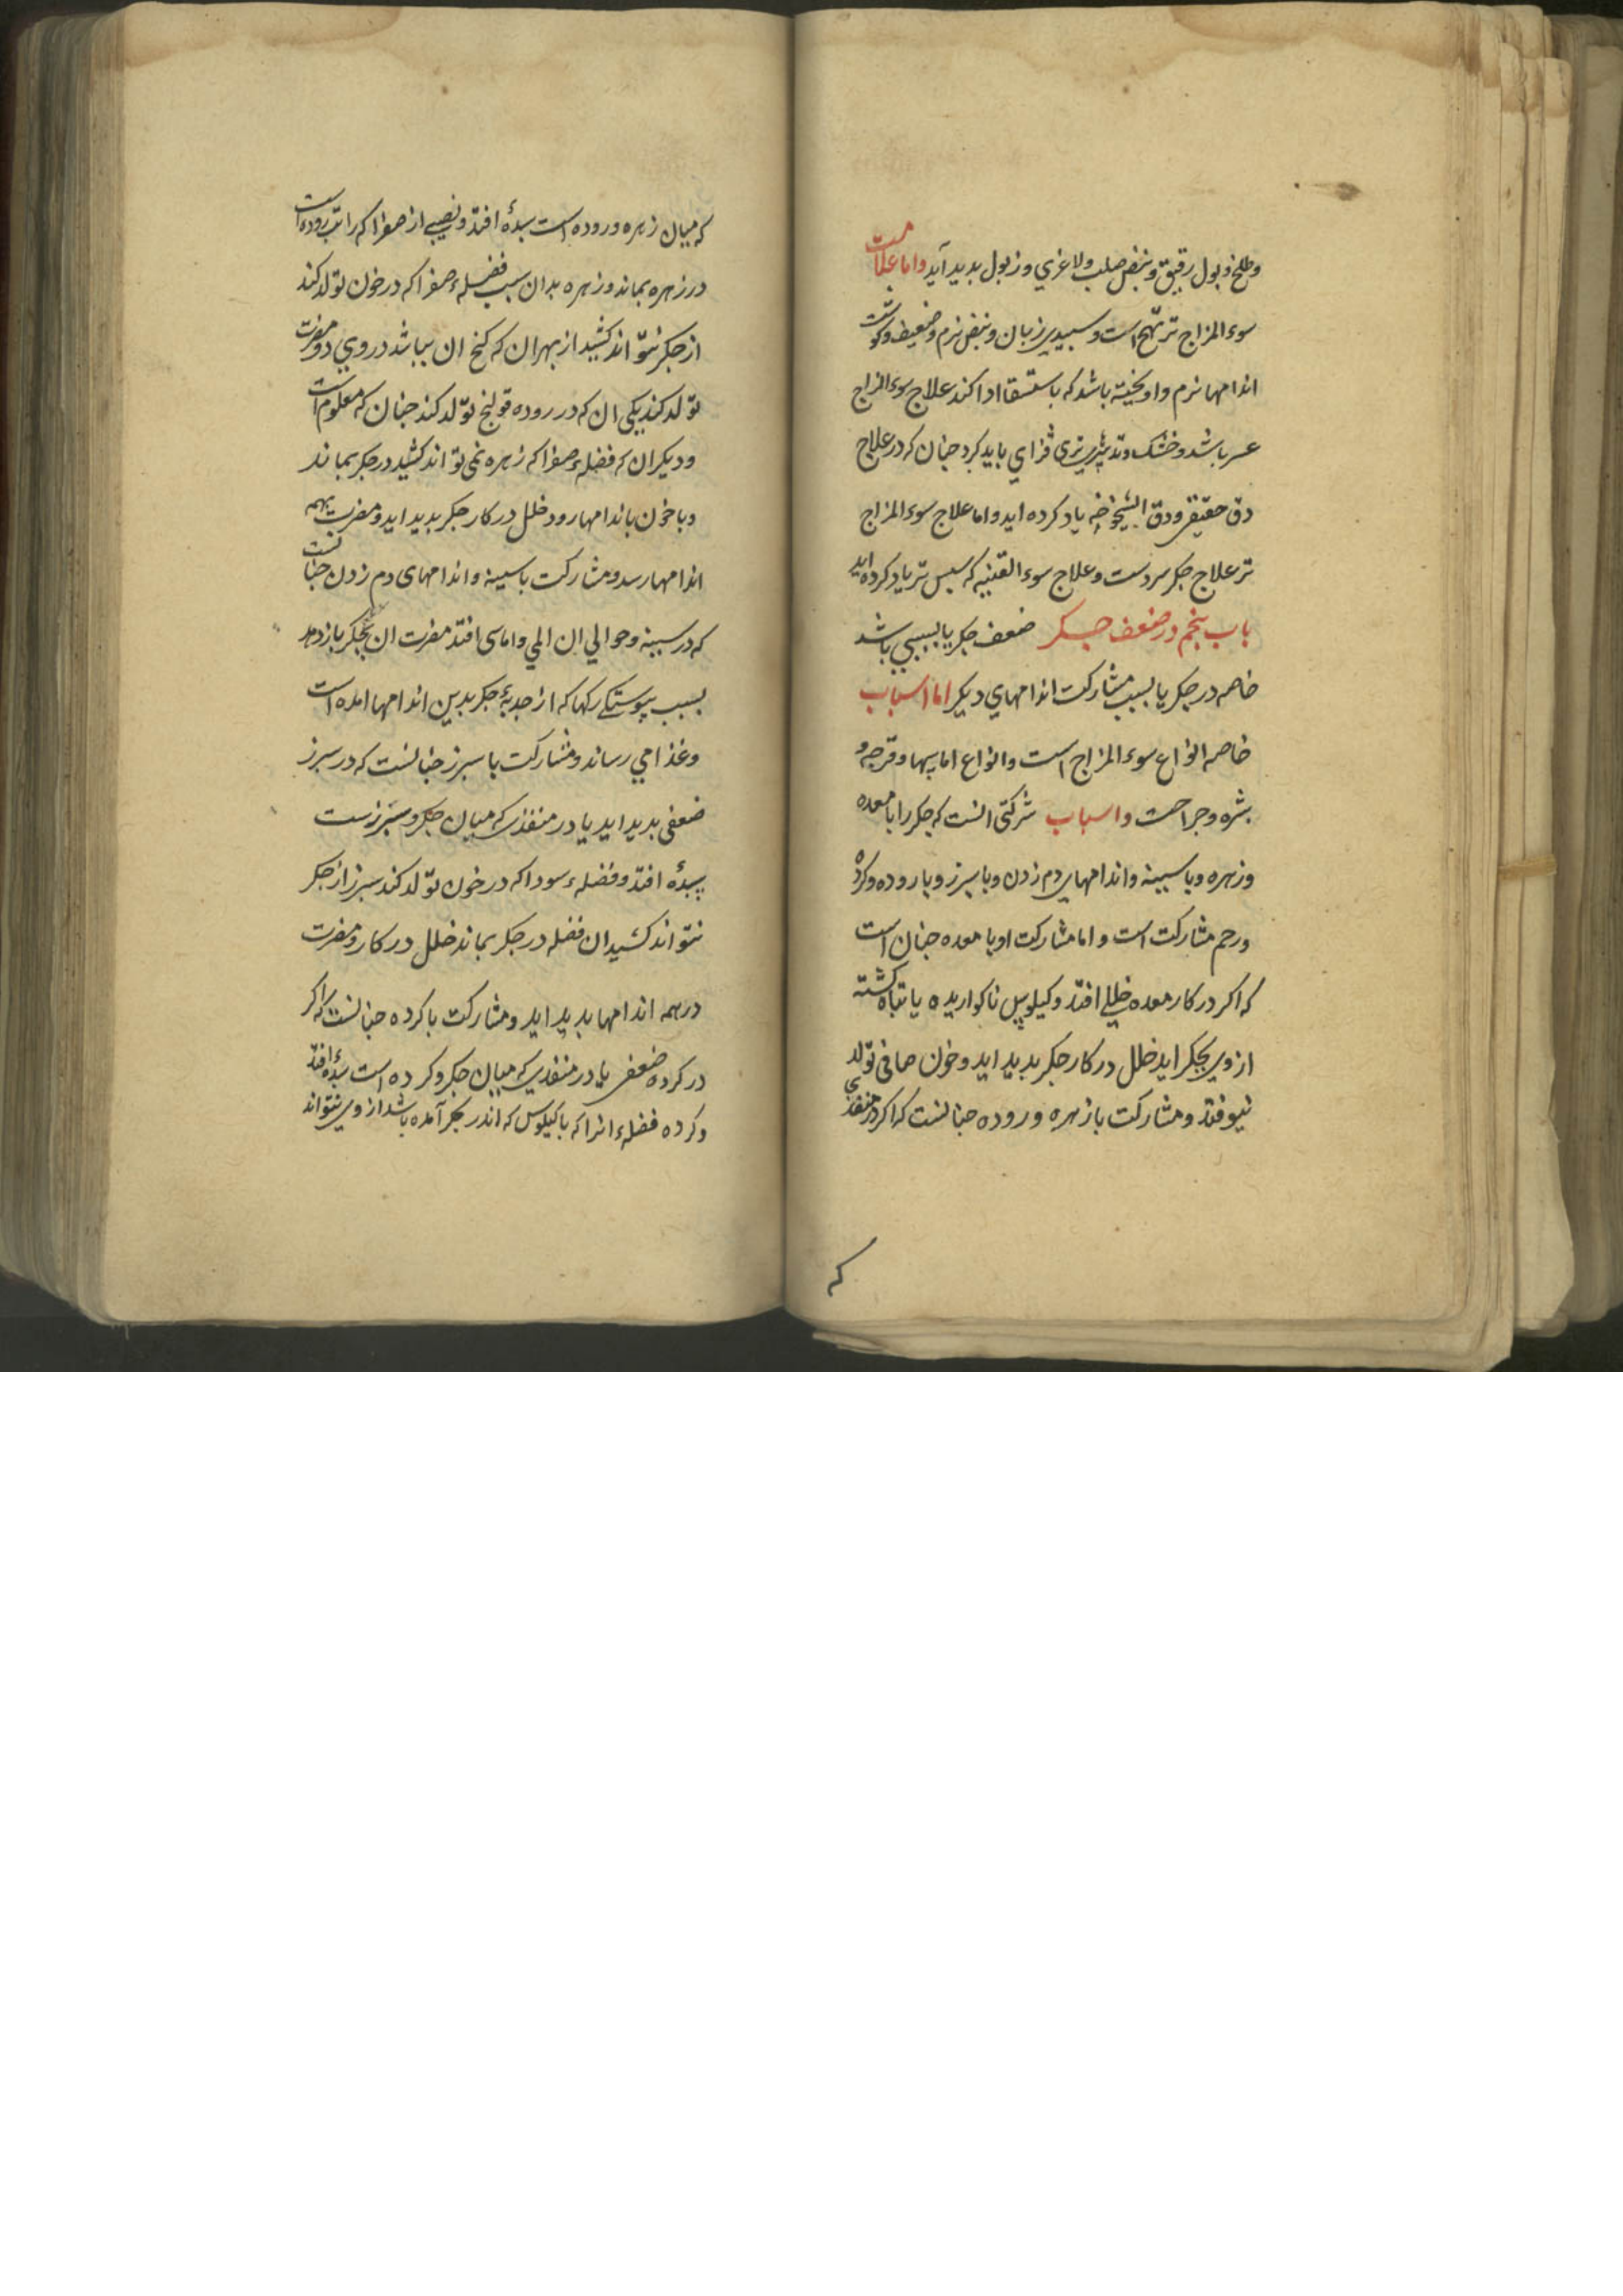 وطلخ وبول رقیق ونبض صلب ولاغری وزبول بدید آید واما علامت
سوء المزاج تر تهّج است وسبیدی زبان ونبض نرم وضعیف وکوشت
اندامها نرم واویخته باشد که باستسقا ادا کند علاج سوء المزاج
عسر باشد وخشک وتدبیر تری فزای باید کرد جنان که در علاج
دق حقیقی ودق الشیخوخه یاد کرده اید واما علاج سوء المزاج
تر علاج جکر سردست وعلاج سوء القنیه که سبس تر یاد کرده اید
باب پنجم در ضعف جکر ضعف جکر یا بسببی باشد
خاصه در جکر یا بسبب مشارکت اندامهای دیکر اما اسباب
خاصه انواع سوء المزاج است وانواع اماسها وقرحه و
بثره وجراحت واسباب شرکتی انست که جکر را با معده
وزهره وبا سینه واندامهای دم زدن وبا سبرز وبا روده وکرده
ورحم مشارکت است واما مشارکت او با معده جنان است
که اکر در کار معده خللی افتد وکیلوس ناکواریده یا تباه کشته
از وی بجکر اید خلل در کار جکر بدید اید وخون صافی تولد
نیوفتد ومشارکت با زهره وروده جنانست که اکر در منفذی
که
که میان زهره وروده است سدهٔ افتد ونصیبی از صفرا که راتب روده است
در زهره بماند وزهره بدان سبب فضلهٔ صفرا که در خون تولد کند
از جکر نتواند کشید از بهر ان که کنج ان بباشد در وی دو مضرت
تولد کند یکی ان که در روده قولنج تولد کند جنان که معلوم است
ودیکر ان که فضلهٔ صفرا که زهره نمی تواند کشید در جکر بماند
وبا خون باندامها رود خلل در کار جکر بدید اید ومضرت بهمه
اندامها رسد ومشارکت با سینه واندامهای دم زدن جنانست
که در سینه وحوالی ان المی واماسی افتد مضرت ان بجکر باز دهد
بسبب پیوستکی رکها که از حدبهٔ جکر بدین اندامها امده است
وغذا می رساند ومشارکت با سبرز جنانست که در سبرز
ضعفی بدید اید یا در منفذی که میان جکر وسبرزست
سدهٔ افتد وفضلهٔ سودا که در خون تولد کند سبرز از جکر
نتواند کشید ان فضله در جکر بماند خلل در کار ومضرت
در همه اندامها بدید اید ومشارکت با کرده جنانست که اکر
در کرده ضعفی یا در منفذی که میان جکر وکرده است سدهٔ افتد
وکرده فضلهٔ انرا که با کیلوس که اندر جکر آمده باشد از وی نتواند